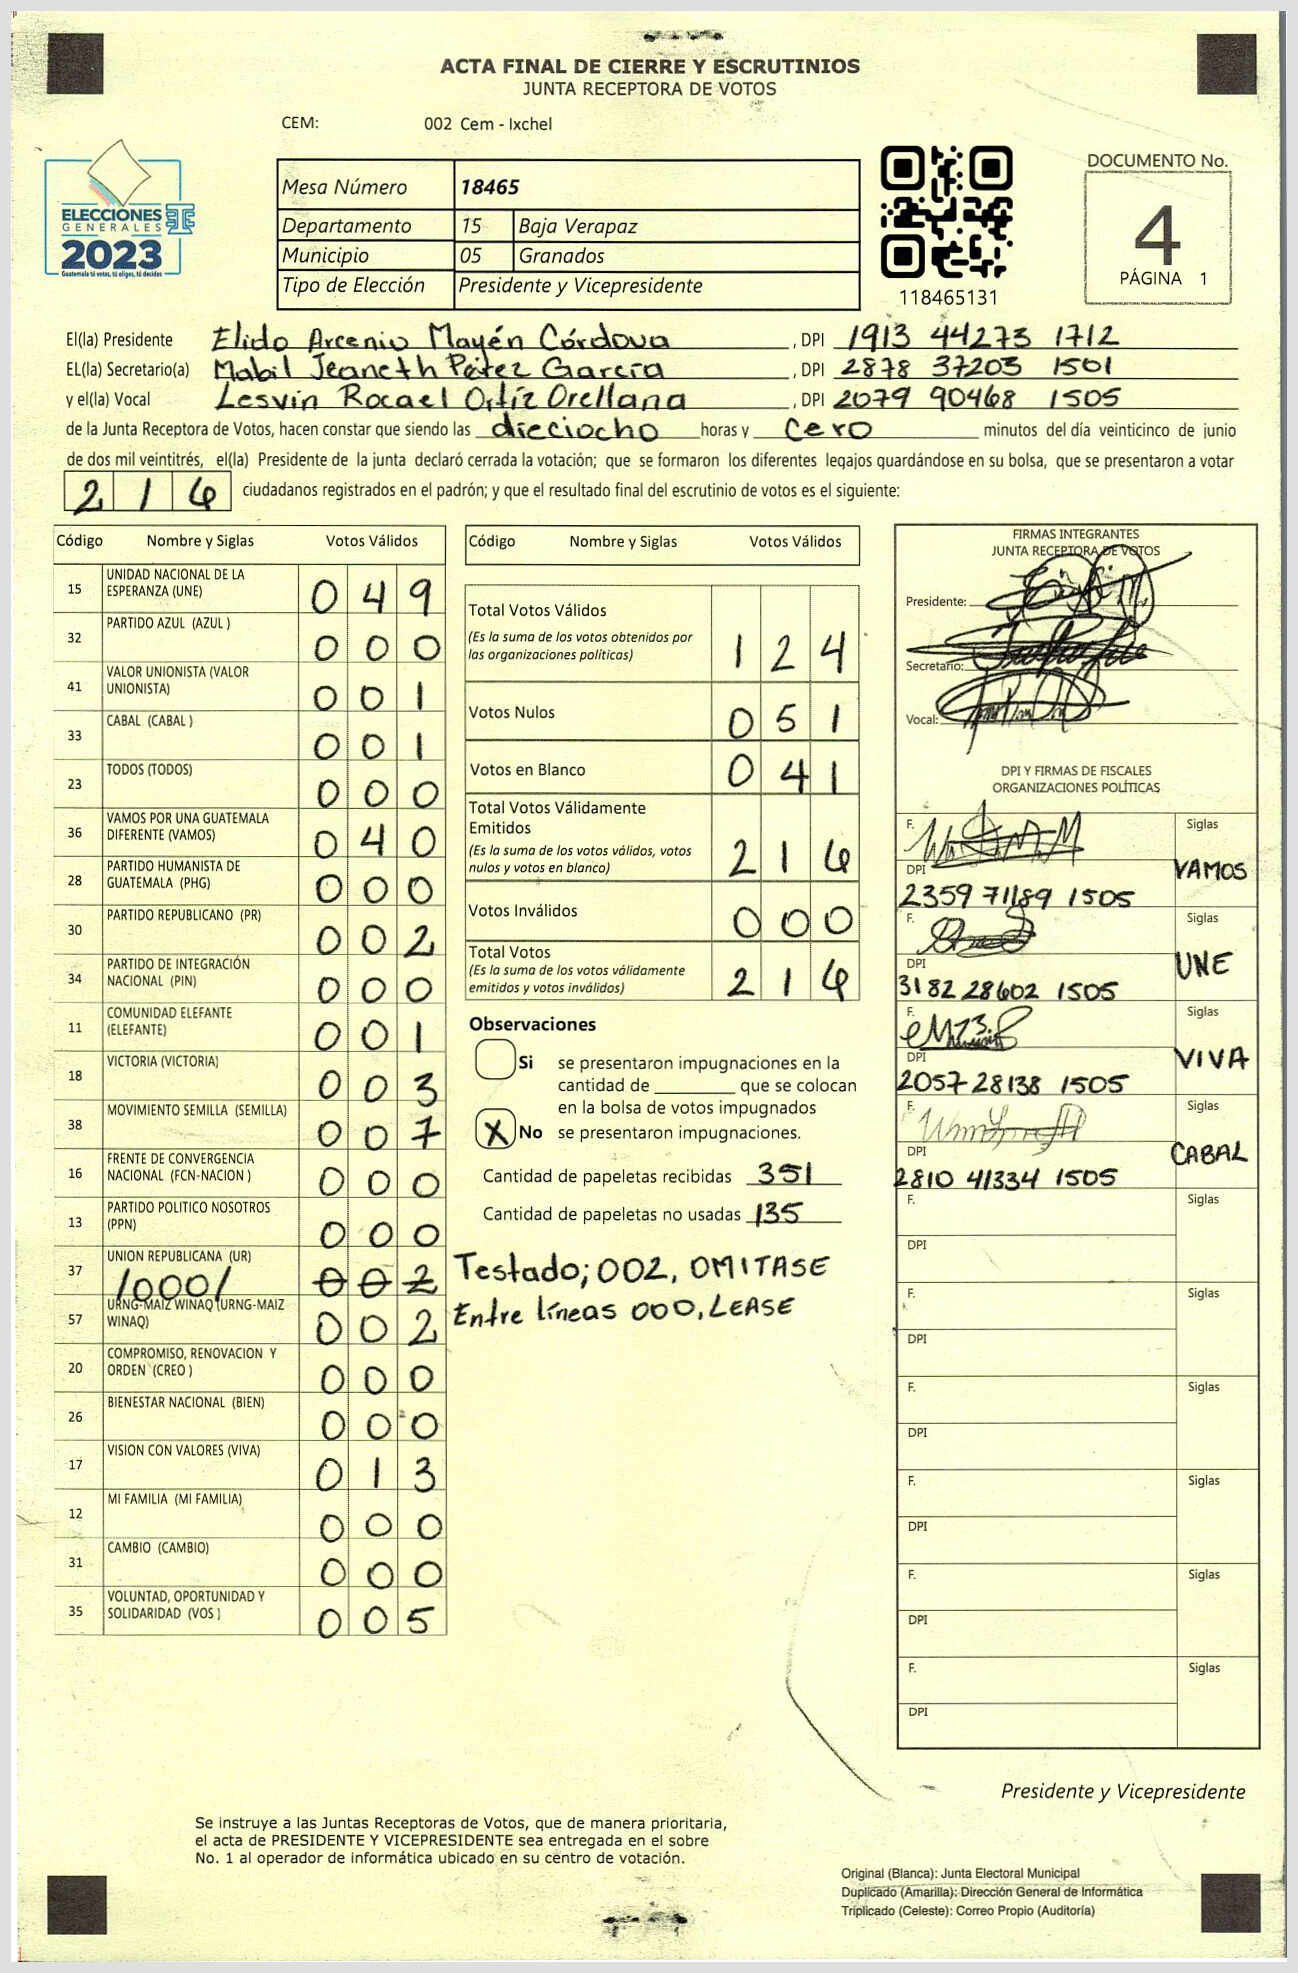 ACTA FINAL DE CIERRE Y ESCRUTINIOS
JUNTA RECEPTORA DE VOTOS
CEM: 002 Cem - Ixchel
ELECCIONES
GENERALES
2023
Guatemala tú votas, tú eliges, tú decides
Mesa Número 18465
Departamento 15 Baja Verapaz
Municipio 05 Granados
Tipo de Elección Presidente y Vicepresidente
118465131
DOCUMENTO No.
4
PÁGINA 1
El(la) Presidente Elido Arcenio Mayén Córdova, DPI 1913 44273 1712
EL(la) Secretario(a) Mabil Jeaneth Pérez García, DPI 2878 37203 1501
y el(la) Vocal Lesvin Rocael Ortíz Orellana, DPI 2079 90468 1505
de la Junta Receptora de Votos, hacen constar que siendo las dieciocho horas y cero minutos del día veinticinco de junio
de dos mil veintitrés, el(la) Presidente de la junta declaró cerrada la votación; que se formaron los diferentes legajos guardándose en su bolsa, que se presentaron a votar
216 ciudadanos registrados en el padrón; y que el resultado final del escrutinio de votos es el siguiente:
Código Nombre y Siglas Votos Válidos
15 UNIDAD NACIONAL DE LA ESPERANZA (UNE) 049
32 PARTIDO AZUL (AZUL ) 000
41 VALOR UNIONISTA (VALOR UNIONISTA) 001
33 CABAL (CABAL ) 001
23 TODOS (TODOS) 000
36 VAMOS POR UNA GUATEMALA DIFERENTE (VAMOS) 040
28 PARTIDO HUMANISTA DE GUATEMALA (PHG) 000
30 PARTIDO REPUBLICANO (PR) 002
34 PARTIDO DE INTEGRACIÓN NACIONAL (PIN) 000
11 COMUNIDAD ELEFANTE (ELEFANTE) 001
18 VICTORIA (VICTORIA) 003
38 MOVIMIENTO SEMILLA (SEMILLA) 007
16 FRENTE DE CONVERGENCIA NACIONAL (FCN-NACION ) 000
13 PARTIDO POLITICO NOSOTROS (PPN) 000
37 UNION REPUBLICANA (UR) /000/ 002
57 URNG-MAIZ WINAQ (URNG-MAIZ WINAQ) 002
20 COMPROMISO, RENOVACION Y ORDEN (CREO ) 000
26 BIENESTAR NACIONAL (BIEN) 000
17 VISION CON VALORES (VIVA) 013
12 MI FAMILIA (MI FAMILIA) 000
31 CAMBIO (CAMBIO) 000
35 VOLUNTAD, OPORTUNIDAD Y SOLIDARIDAD (VOS ) 005
Código Nombre y Siglas Votos Válidos
Total Votos Válidos 124
(Es la suma de los votos obtenidos por
las organizaciones políticas)
Votos Nulos 051
Votos en Blanco 041
Total Votos Válidamente
Emitidos 216
(Es la suma de los votos válidos, votos
nulos y votos en blanco)
Votos Inválidos 000
Total Votos 216
(Es la suma de los votos válidamente
emitidos y votos inválidos)
Observaciones
Si se presentaron impugnaciones en la
cantidad de ________ que se colocan
en la bolsa de votos impugnados
X No se presentaron impugnaciones.
Cantidad de papeletas recibidas 351
Cantidad de papeletas no usadas 135
Testado; 002, OMITASE
Entre líneas 000, LEASE
FIRMAS INTEGRANTES
JUNTA RECEPTORA DE VOTOS
Presidente:
Secretario:
Vocal:
DPI Y FIRMAS DE FISCALES
ORGANIZACIONES POLÍTICAS
F. Siglas
DPI VAMOS
2359 71189 1505
F. Siglas
DPI UNE
3182 28602 1505
F. Siglas
DPI VIVA
2057 28138 1505
F. Siglas
DPI CABAL
2810 41334 1505
F. Siglas
DPI
F. Siglas
DPI
F. Siglas
DPI
F. Siglas
DPI
F. Siglas
DPI
F. Siglas
DPI
Presidente y Vicepresidente
Se instruye a las Juntas Receptoras de Votos, que de manera prioritaria,
el acta de PRESIDENTE Y VICEPRESIDENTE sea entregada en el sobre
No. 1 al operador de informática ubicado en su centro de votación.
Original (Blanca): Junta Electoral Municipal
Duplicado (Amarilla): Dirección General de Informática
Triplicado (Celeste): Correo Propio (Auditoría)